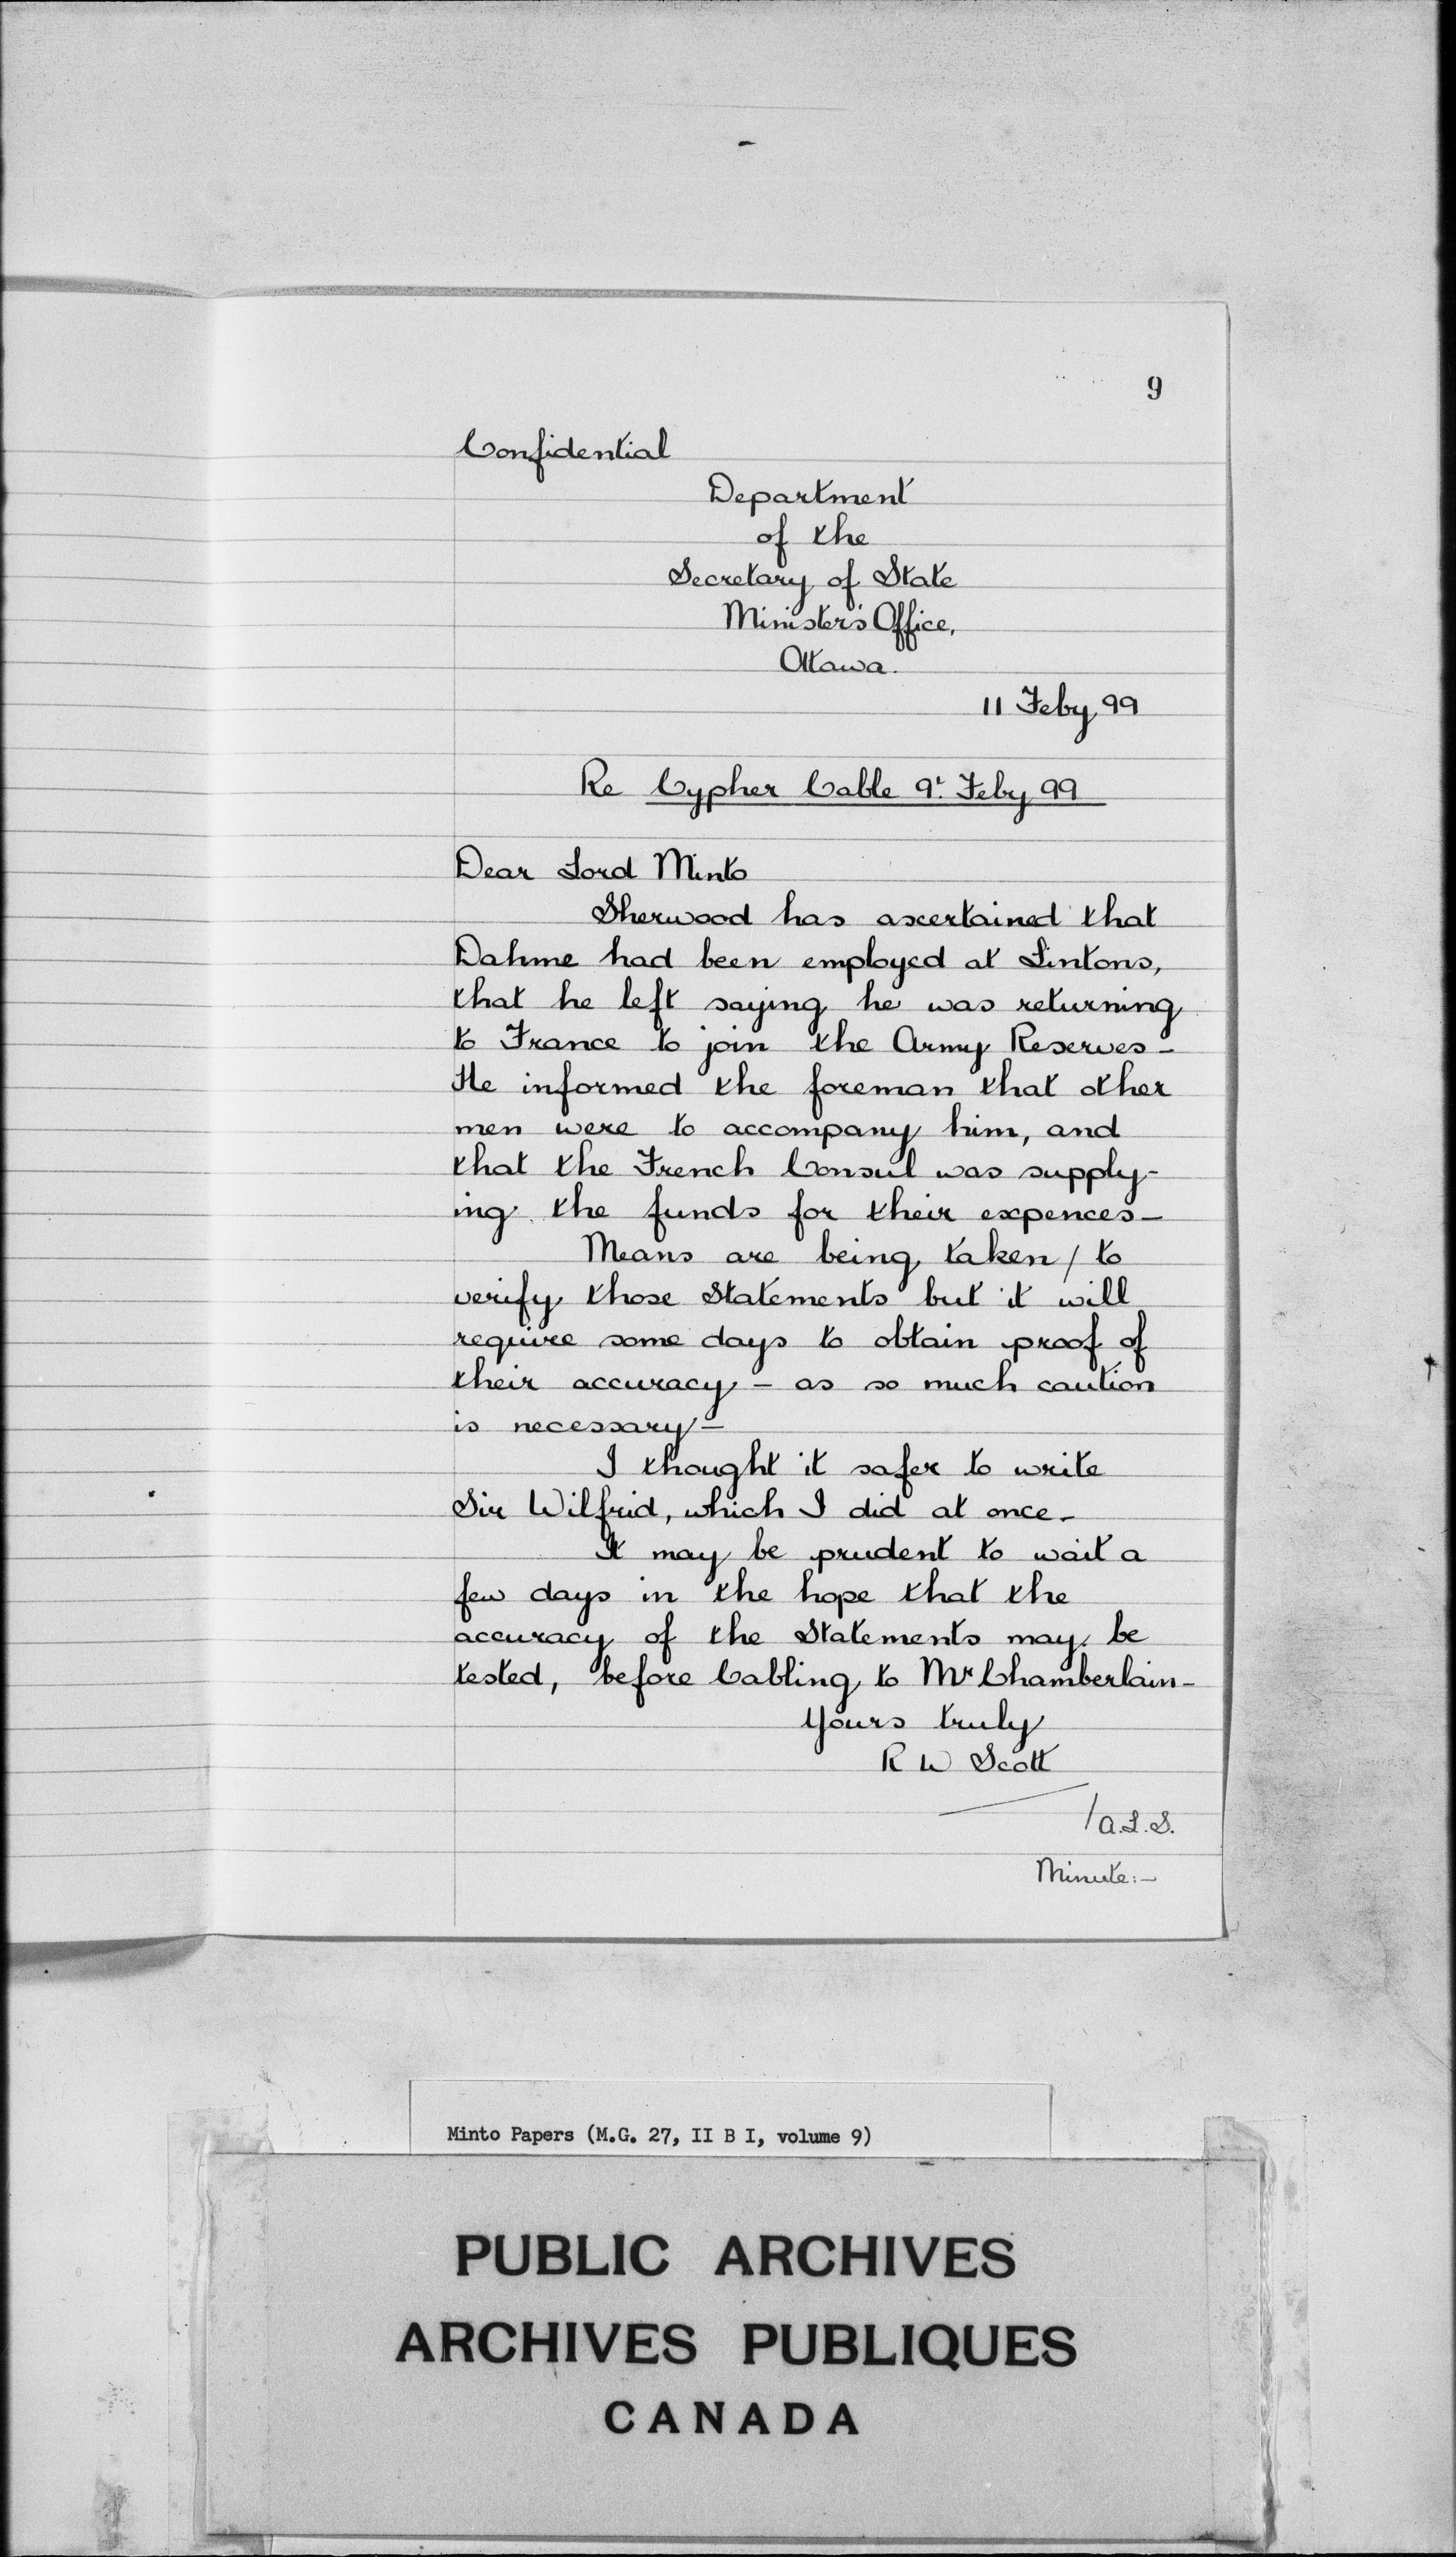 9
Confidential
Department
of the
Secretary of State
Minister's Office,
Ottawa.
11 Feby 99
Re Cypher Cable 9th. Feby 99
Dear Lord Minto
Sherwood has ascertained that
Dahme had been employed at Lintons,
that he left saying he was returning
to France to join the Army Reserves -
He informed the foreman that other
men were to accompany him, and
that the French Consul was supply-
ing the funds for their expences -
Means are being taken / to
verify those Statements but it will
require some days to obtain proof of
their accuracy - as so much caution
is necessary -
I thought it safer to write
Sir Wilfrid, which I did at once -
It may be prudent to wait a
few days in the hope that the
accuracy of the Statements may be
tested, before Cabling to Mr Chamberlain -
Yours truly
R W Scott
/ A.L.S.
Minute: -
Minto Papers (M.G. 27, II B I, volume 9)
PUBLIC ARCHIVES
ARCHIVES PUBLIQUES
CANADA